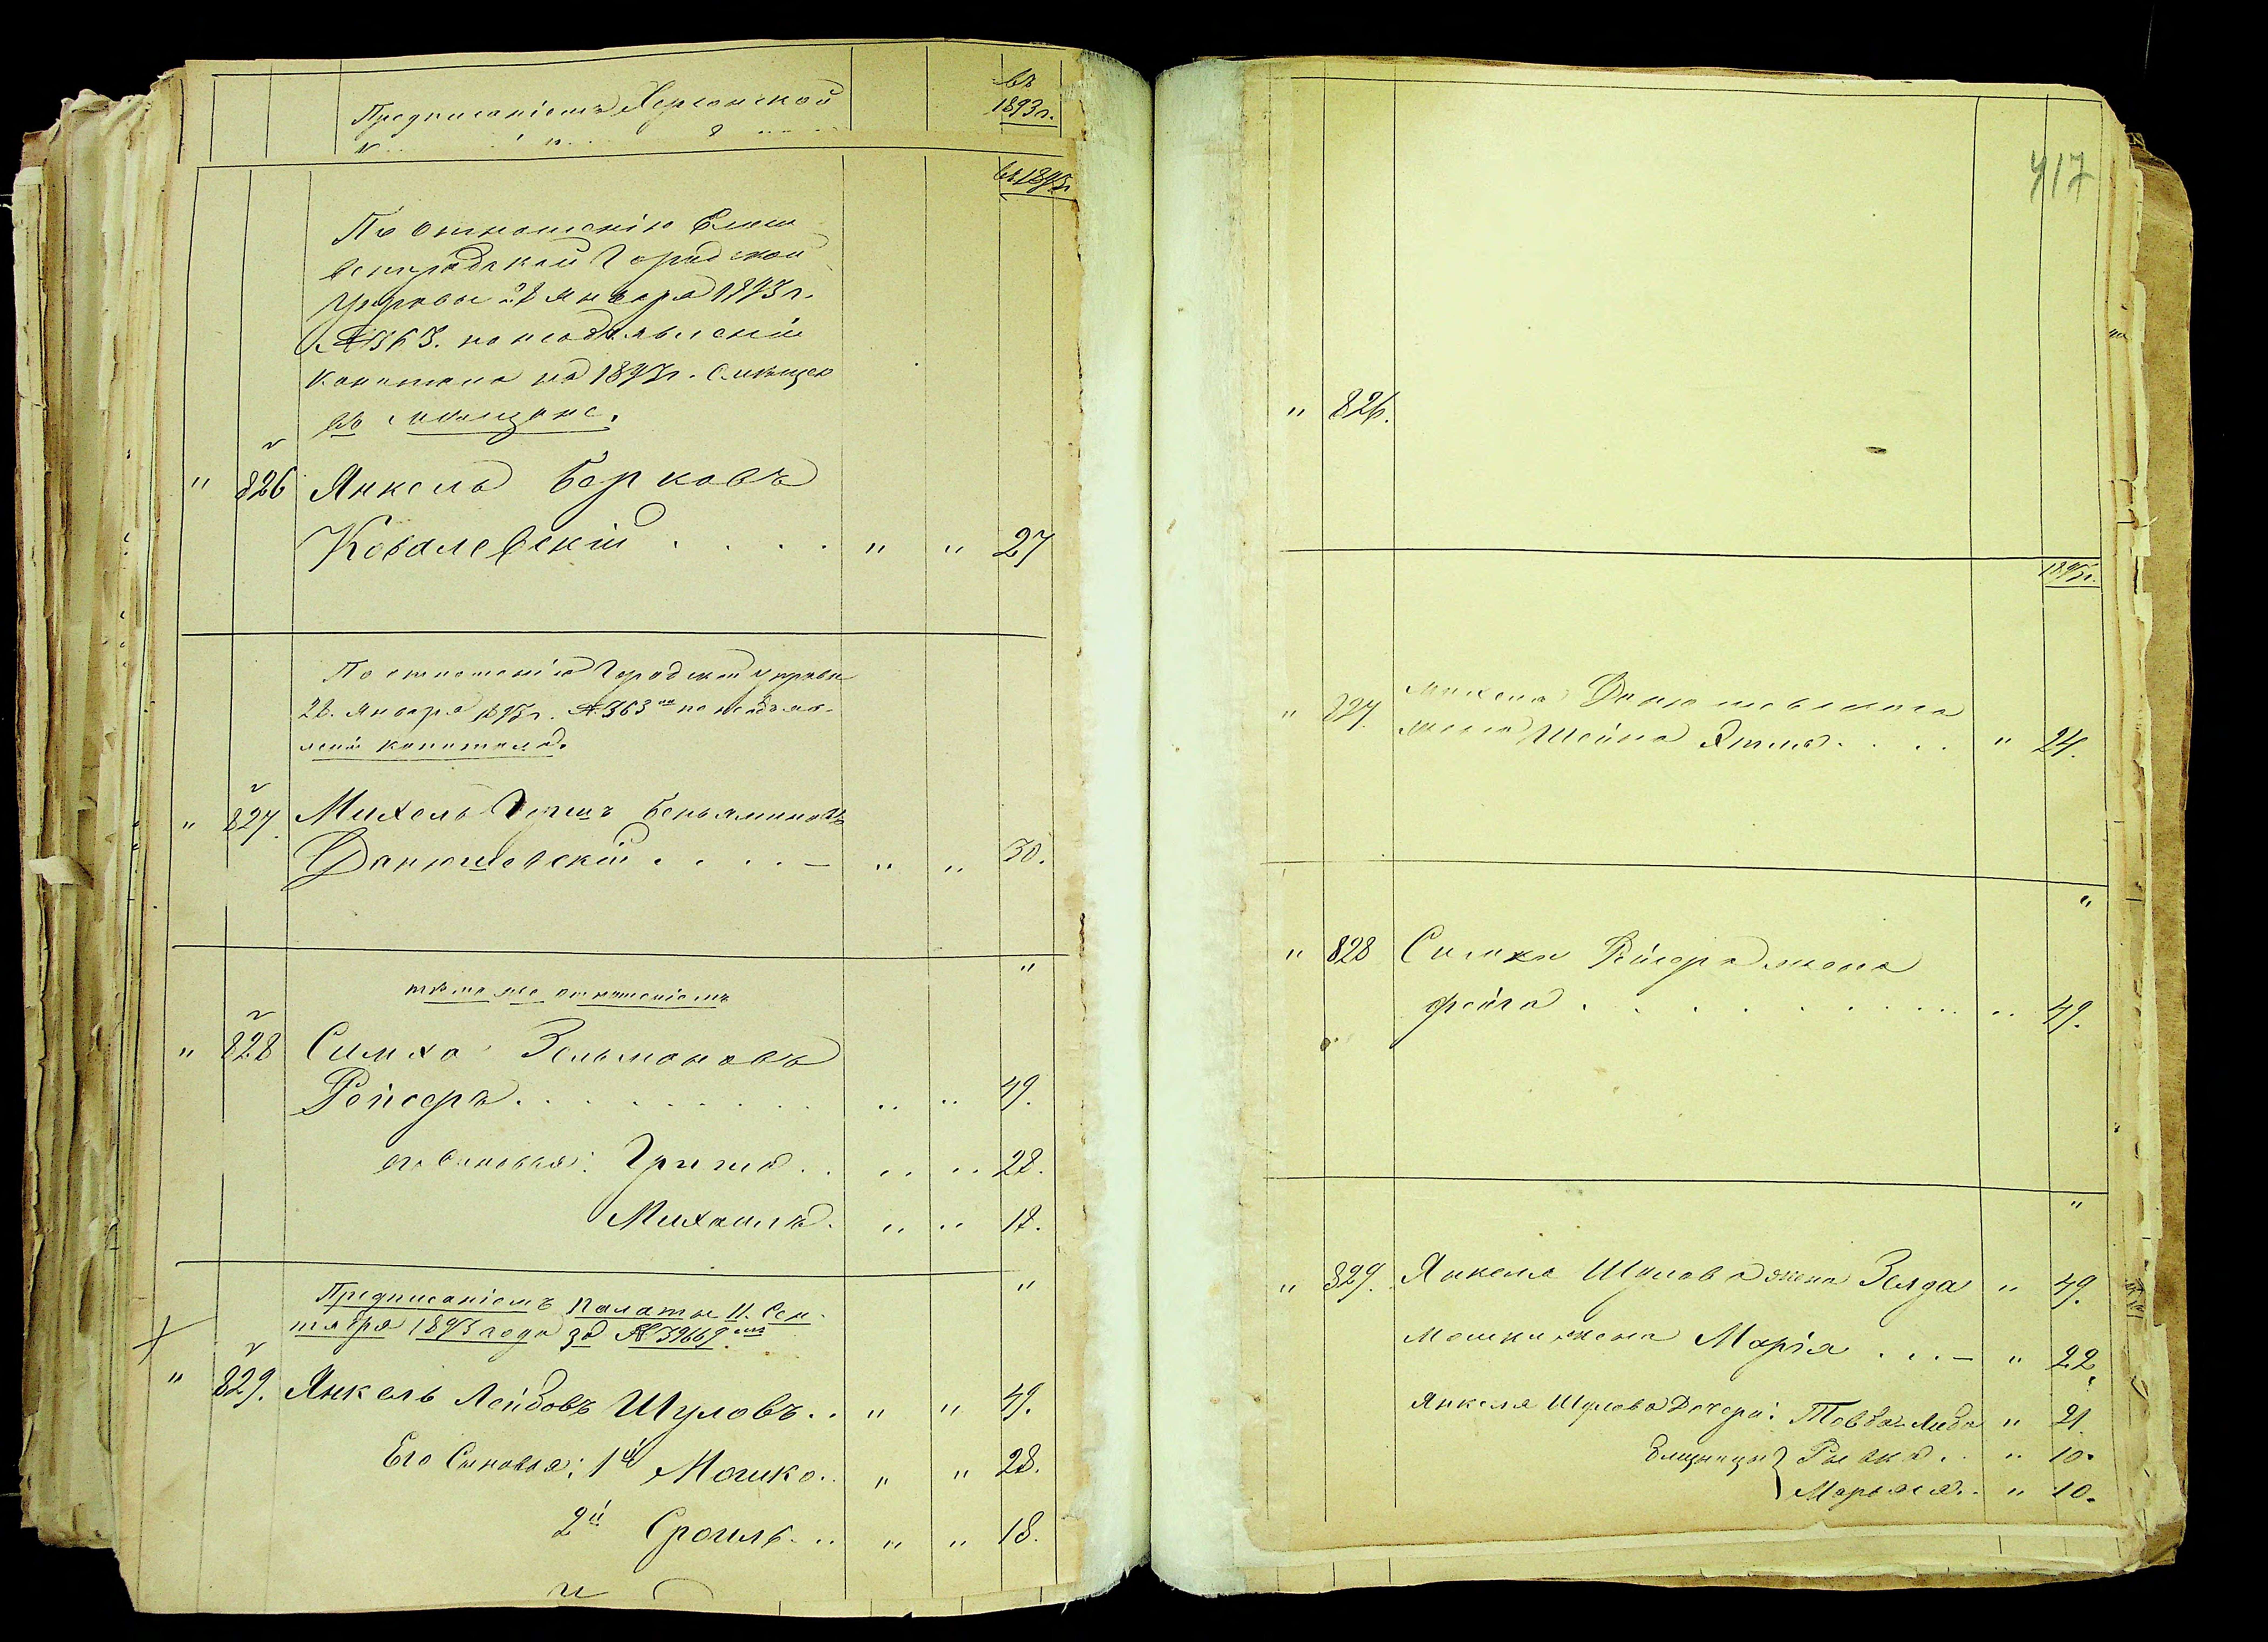 Предписаніемъ Херсонской
въ
1893 г.
въ 1893 г.
По отношенію Елиса
ветградской Городской
Управы 28 Января 1893 г.
№ 363. по необъявленію
капитала на 1893 г. Смѣщен
въ мѣщане.
" 826 Янкель Берковъ
Ковалевскій . . . . " " 27
По отношенію Городской управы
28. Января 1893 г. № 363 по необъяв-
ленію капитала.
" 827. Михель Гершъ Беньяминовъ
Данюшевскій . . . . — " " 30.
"
тѣмъ же отношеніемъ
" 828 Симха Зельмановъ
Рейсеръ . . . . . . . " " 49.
его Сыновья: Гришa . . " " 28.
Михаилъ . " " 18.
"
Предписаніемъ Палаты 11. Сен-
тября 1893 года за № 39669.
" 829. Янкель Лейбовъ Шуловъ . . " " 49.
Его Сыновья: 1й Мошко . . " " 28.
2й Сроиль . . " " 18.
417
" 826.
1893 г.
" 827. Михеля Данюшевскаго
жена Шейна Этля . . . . " 24.
"
" 828 Симхи Рейсера жена
Фейга . . . . . . . . " 49.
"
" 829. Янкеля Шулова жена Зелда " 49.
Мошки жена Марія . . . — " 22.
Янкеля Шулова Дочери: Товба Либа " 21.
Близнецы } Рывка . . " 10.
Марьяся . . " 10.